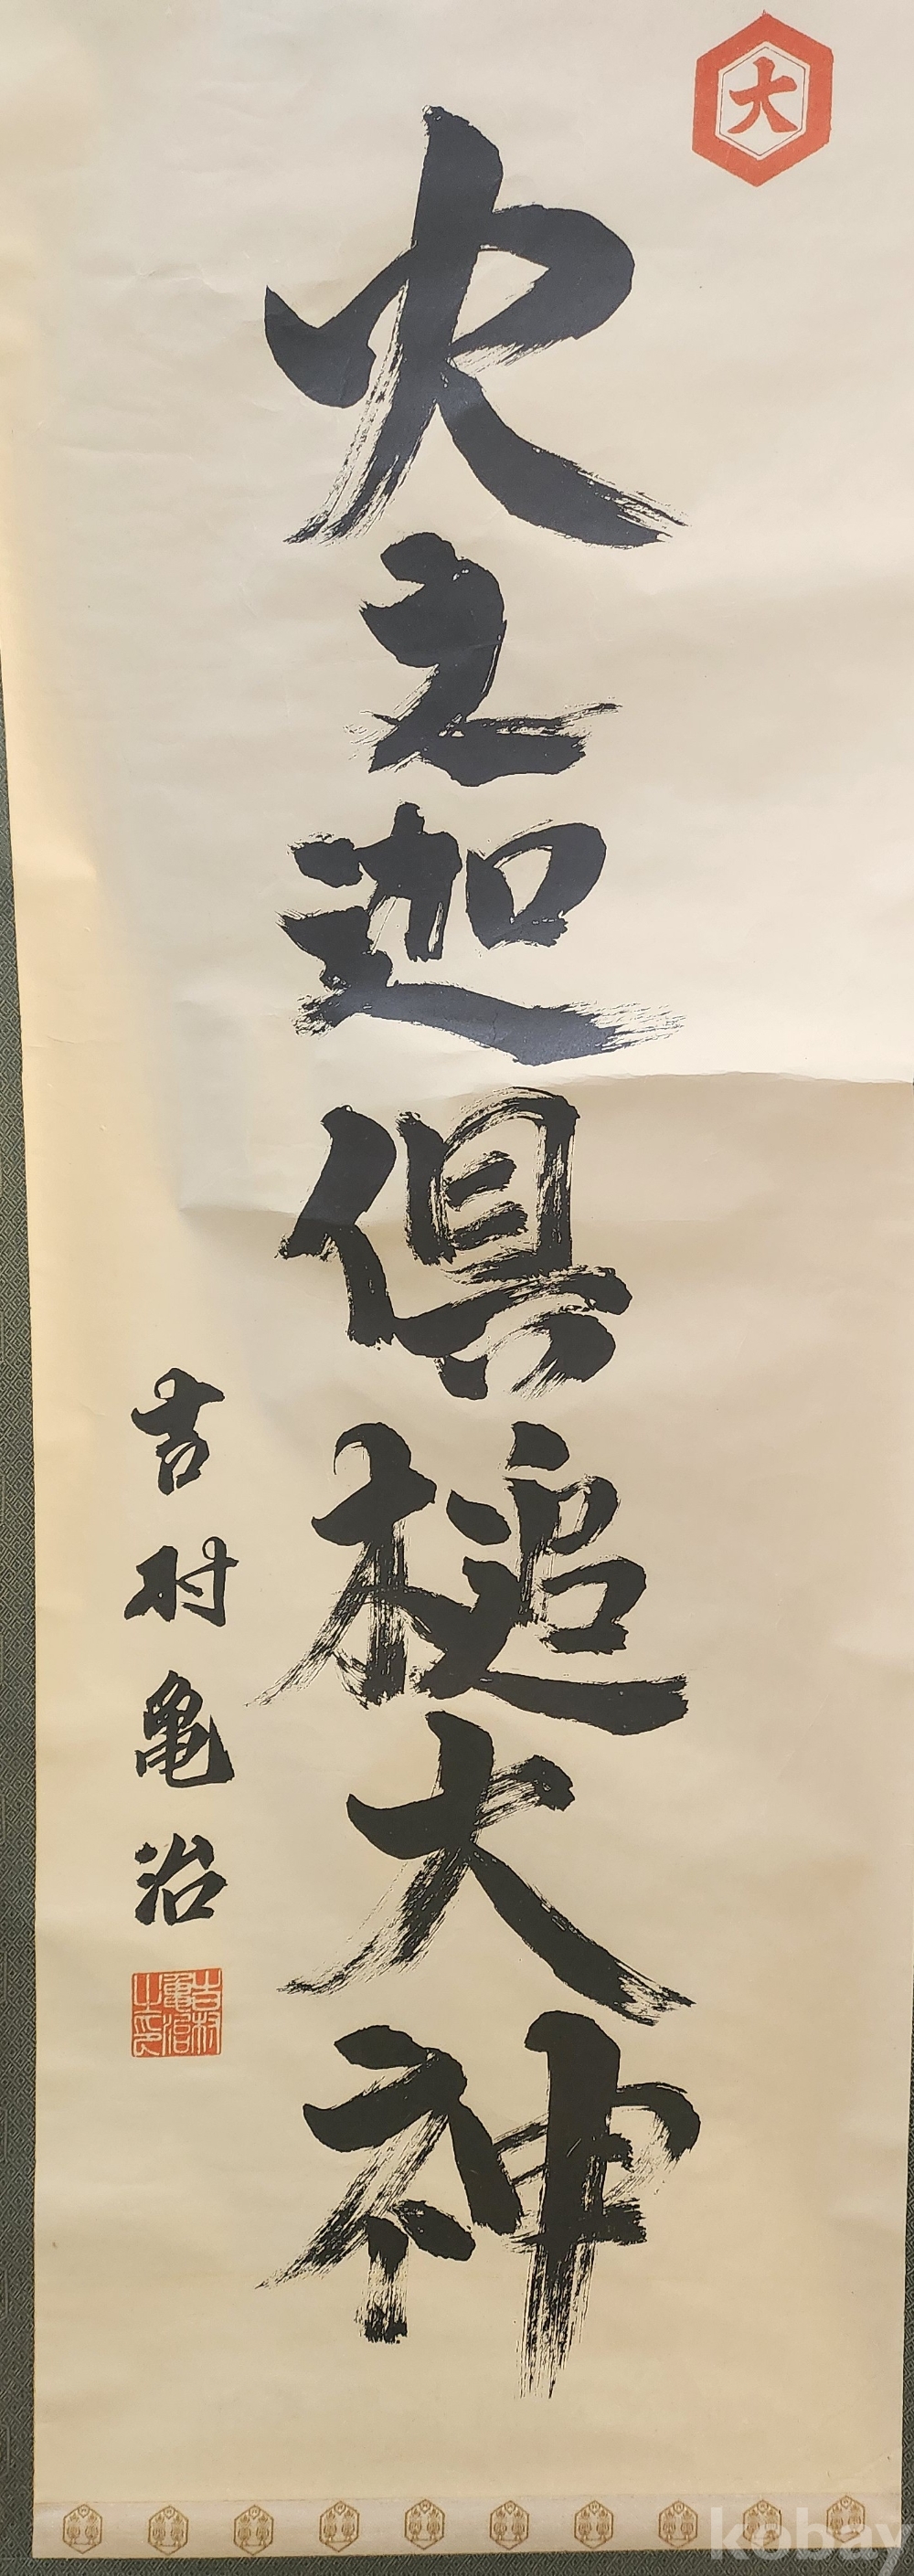 大
火之迦倶槌大神
吉村亀治
吉村
亀治
之印
kobay